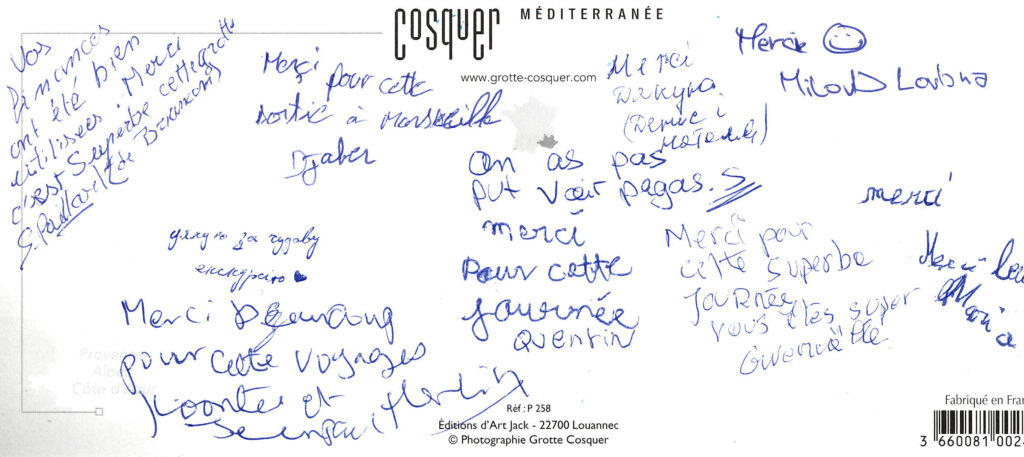 cosquer MÉDITERRANÉE
www.grotte-cosquer.com
Vos
finances
ont été bien
utilisées Merci
c'est superbe cette grotte
G. Paillart de Besançon
Merçi
pour cette
sortie à Marseille
Djaber
Merci
Дякую.
(Денис і
Наталя)
Merci
Miloud Loubna
On as pas
put voir pagas.S
merci
Pour cette
journée
Quentin
merci
дякую за чудову
екскурсію
Merci Beaucoup
pour cette voyages
et
Merci pour
cette superbe
journée
vous êtes super
Gwenaëlle
Merci
Maria
Provence
Alpes
Côte d'Azur
Réf : P 258
Éditions d'Art Jack - 22700 Louannec
© Photographie Grotte Cosquer
Fabriqué en Fran
3 660081 002